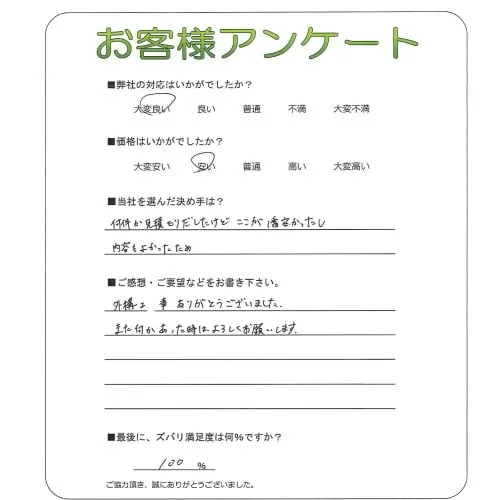 お客様アンケート
■弊社の対応はいかがでしたか?
大変良い 良い 普通 不満 大変不満
■価格はいかがでしたか?
大変安い 安い 普通 高い 大変高い
■当社を選んだ決め手は?
何件か見積もりだしたけど ここが1番安かったし
内容もよかったため
■ご感想・ご要望などをお書き下さい。
外構工事 ありがとうございました。
また何かあった時はよろしくお願いします。
■最後に、ズバリ満足度は何%ですか?
100 %
ご協力頂き、誠にありがとうございました。